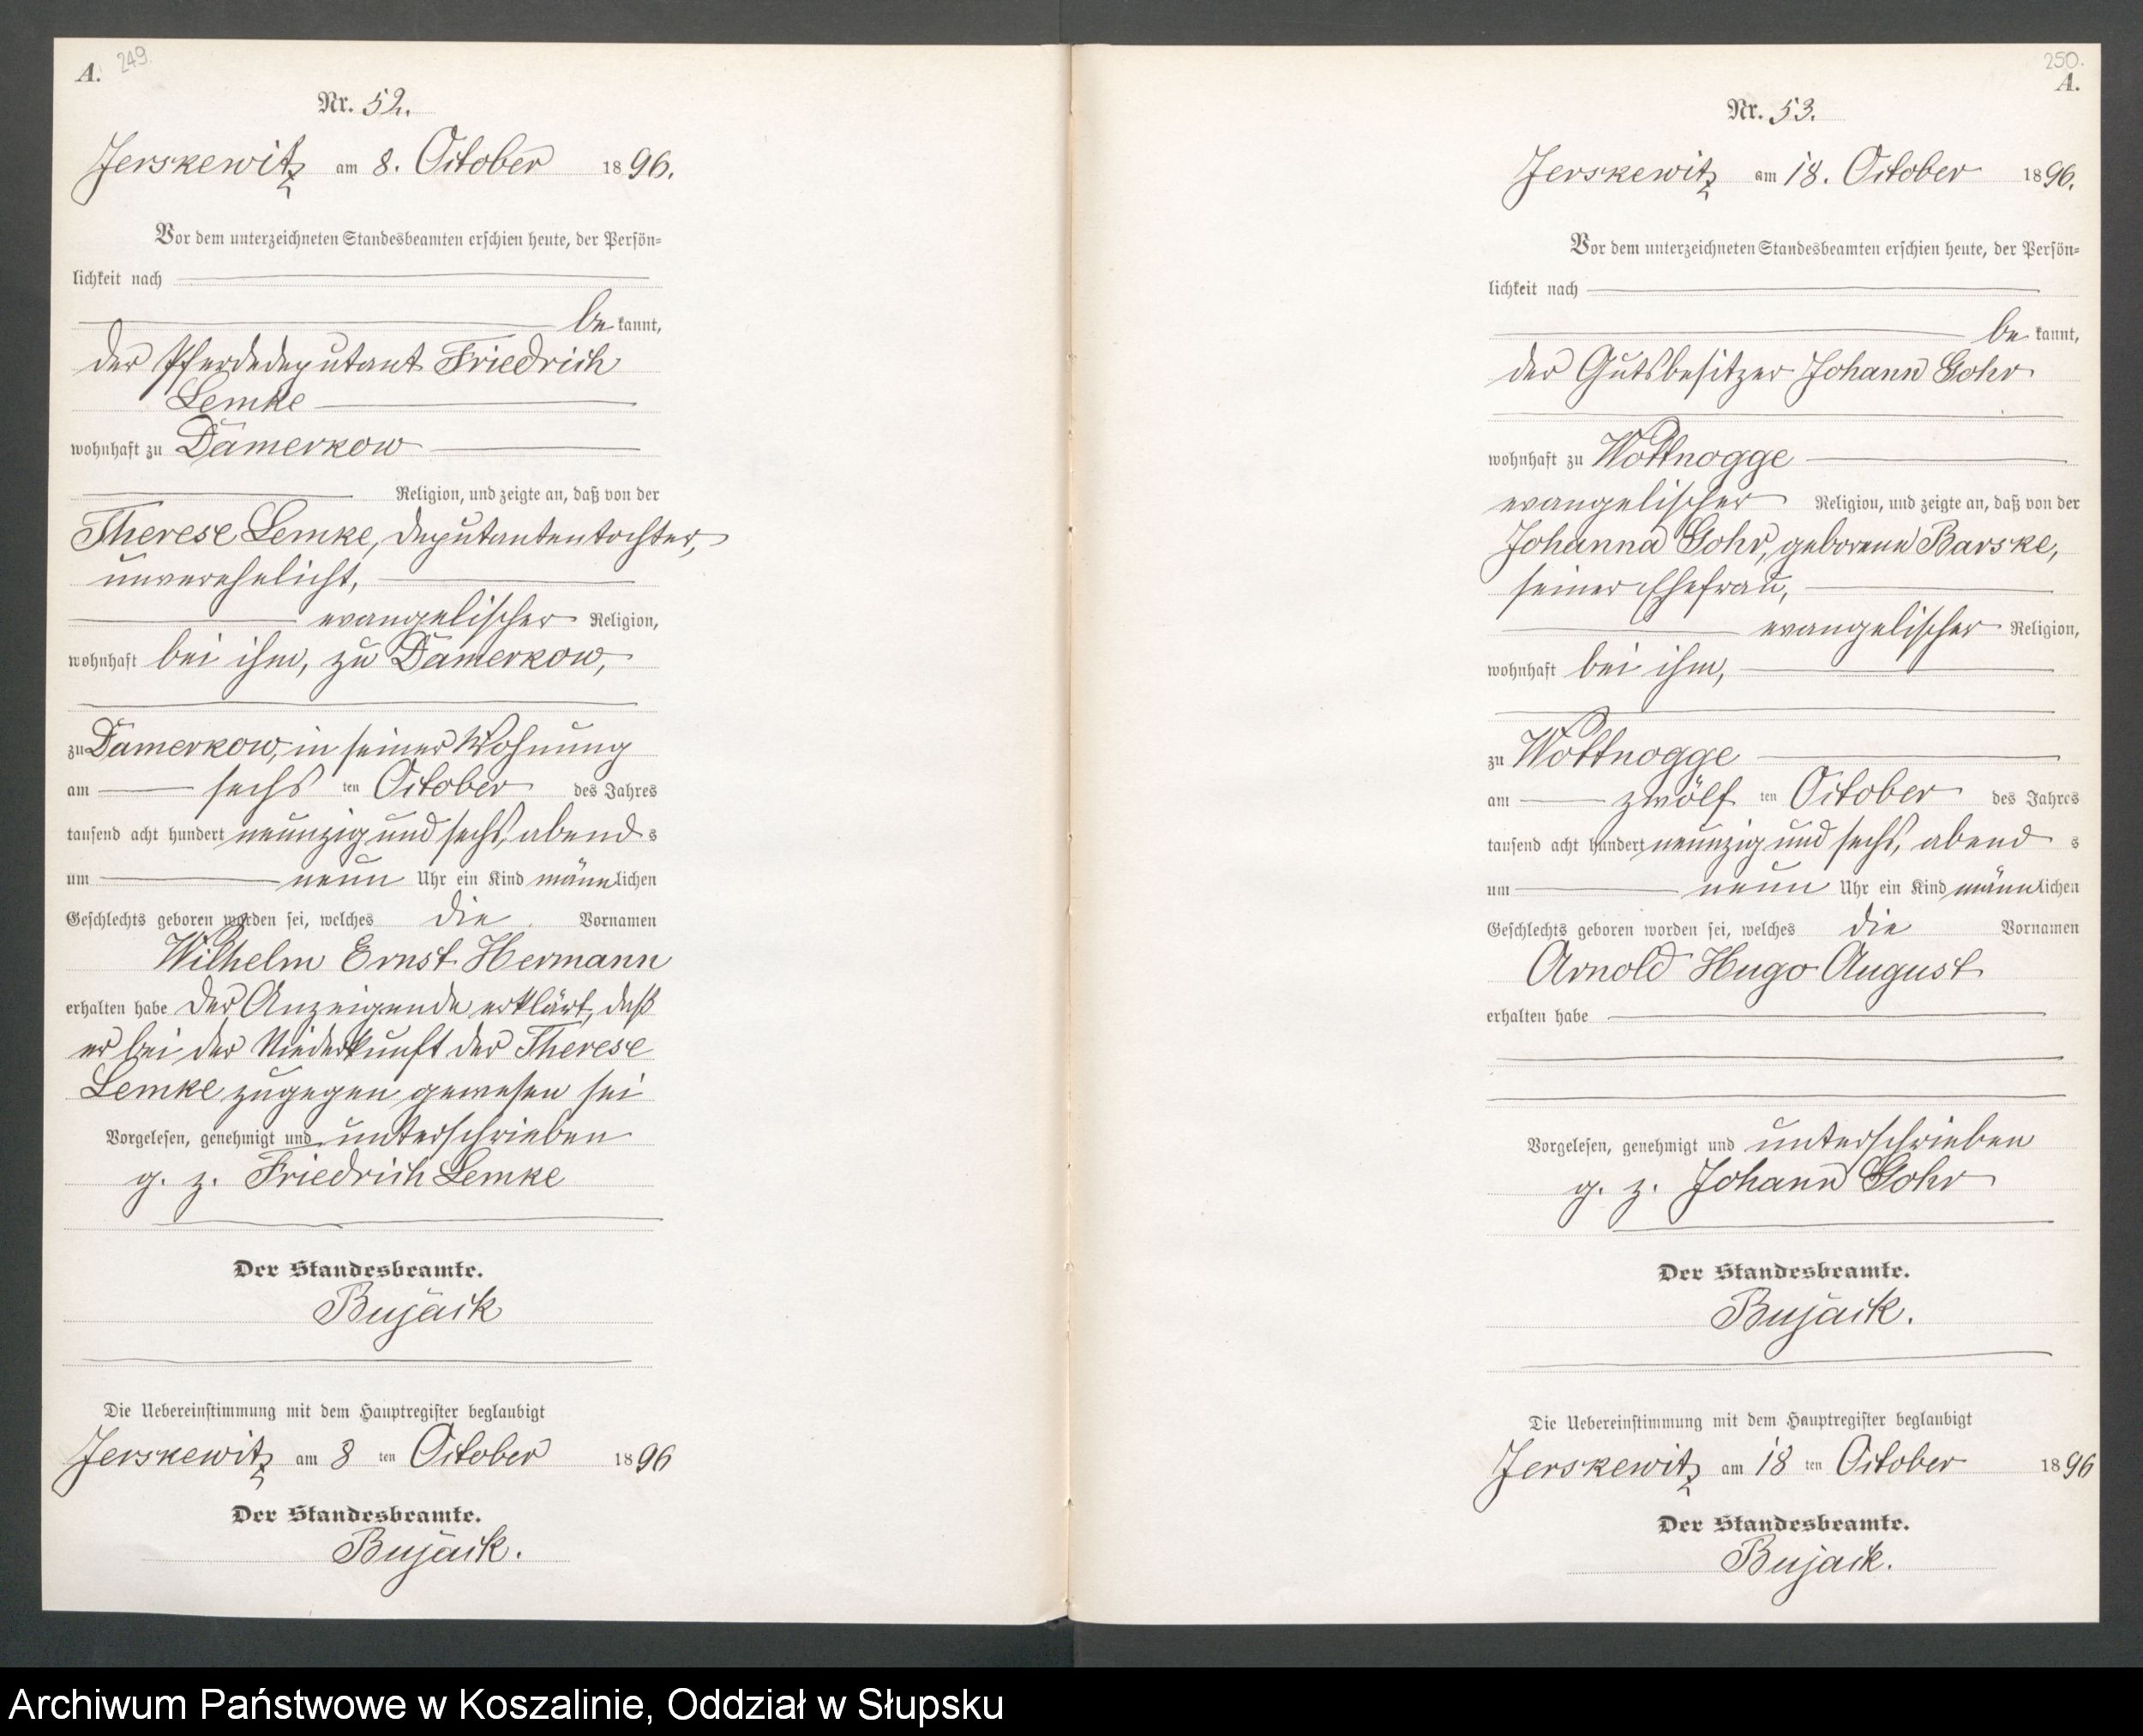 A. 249.
Nr. 52.
Jerskewitz am 8. October 1896.
Vor dem unterzeichneten Standesbeamten erschien heute, der Persön-
lichkeit nach
be kannt,
der Pferdedeputant Friedrich
Lemke
wohnhaft zu Damerkow
Religion, und zeigte an, daß von der
Therese Lemke, Deputantentochter,
unverehelicht,
evangelischer Religion,
wohnhaft bei ihm, zu Damerkow,
zu Damerkow, in seiner Wohnung
am sechs ten October des Jahres
tausend acht hundert neunzig und sechs, abend s
um neun Uhr ein Kind männlichen
Geschlechts geboren worden sei, welches die Vornamen
Wilhelm Ernst Hermann
erhalten habe Der Anzeigende erklärt, daß
er bei der Niederkunft der Therese
Lemke zugegen gewesen sei
Vorgelesen, genehmigt und unterschrieben
g. z. Friedrich Lemke
Der Standesbeamte.
Bujack
Die Uebereinstimmung mit dem Hauptregister beglaubigt
Jerskewitz am 8 ten October 1896
Der Standesbeamte.
Bujack.
250.
A.
Nr. 53.
Jerskewitz am 18. October 1896.
Vor dem unterzeichneten Standesbeamten erschien heute, der Persön-
lichkeit nach
be kannt,
der Gutsbesitzer Johann Gohr
wohnhaft zu Wottnogge
evangelischer Religion, und zeigte an, daß von der
Johanna Gohr, geborene Barske,
seiner Ehefrau,
evangelischer Religion,
wohnhaft bei ihm,
zu Wottnogge
am zwölf ten October des Jahres
tausend acht hundert neunzig und sechs, abend s
um neun Uhr ein Kind männlichen
Geschlechts geboren worden sei, welches die Vornamen
Arnold Hugo August
erhalten habe
Vorgelesen, genehmigt und unterschrieben
g. z. Johann Gohr
Der Standesbeamte.
Bujack.
Die Uebereinstimmung mit dem Hauptregister beglaubigt
Jerskewitz am 18 ten October 1896
Der Standesbeamte.
Bujack.
Archiwum Państwowe w Koszalinie, Oddział w Słupsku